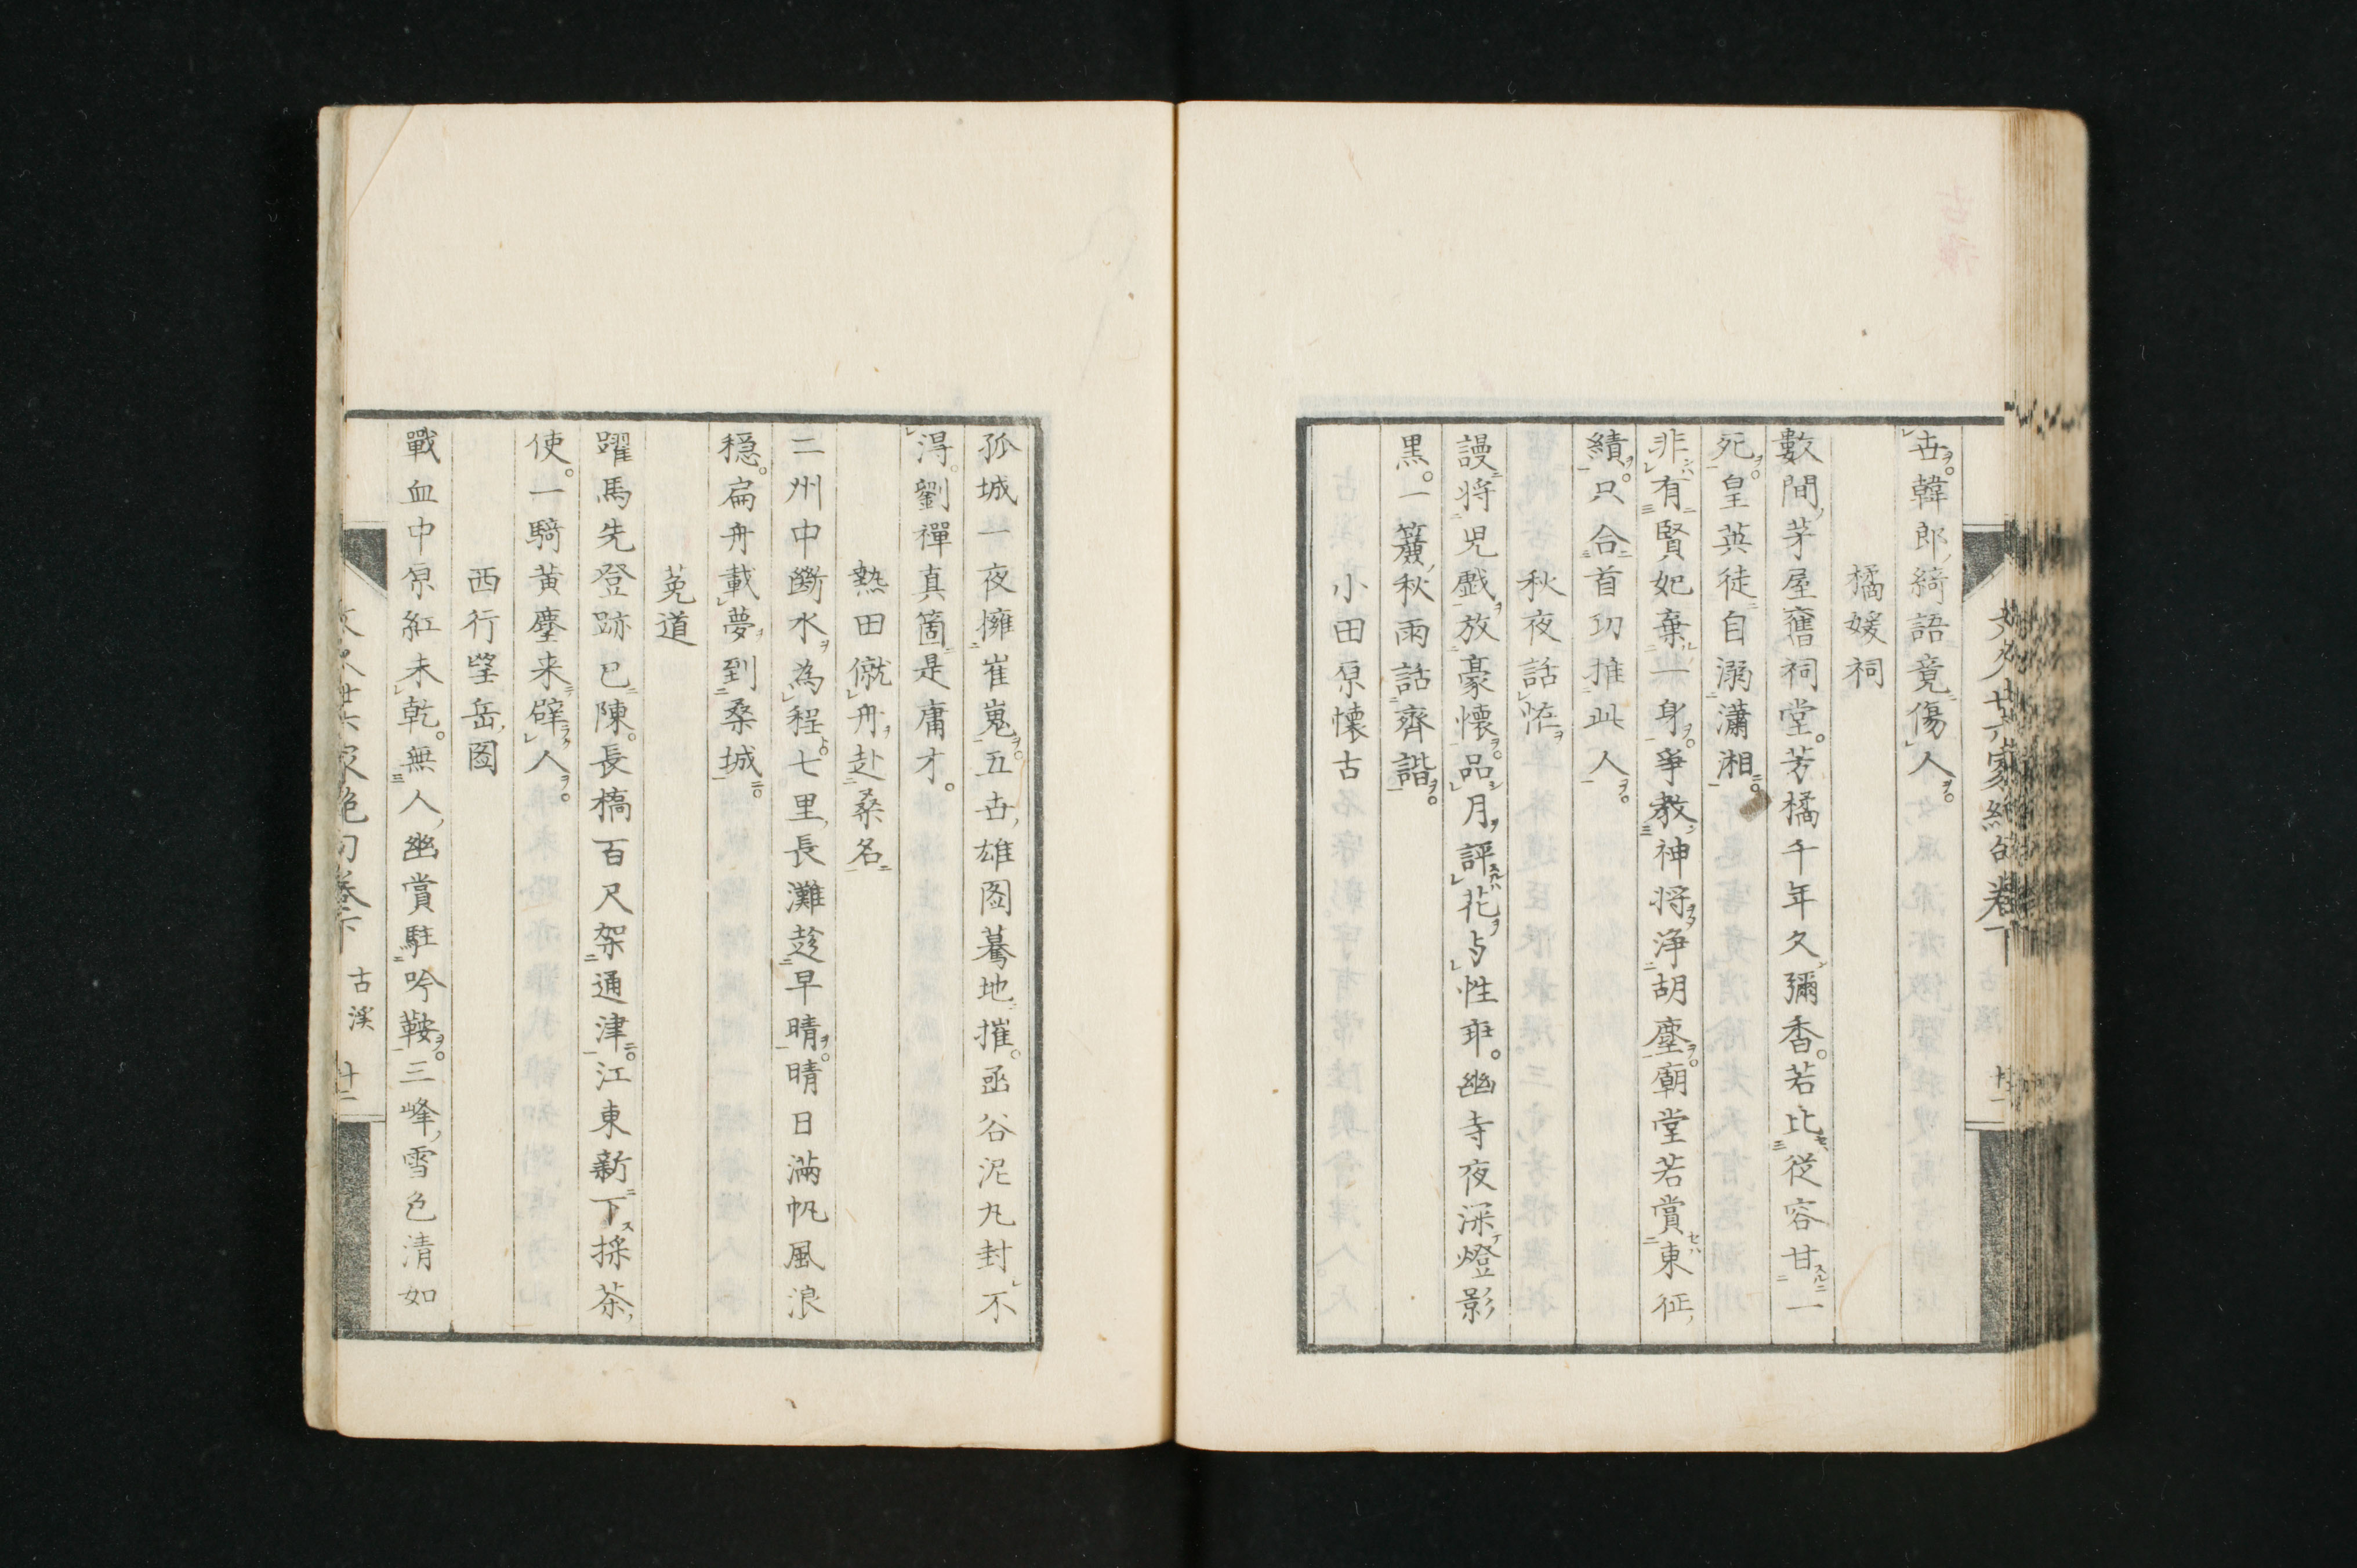 世。韓郎綺語竟傷人。
橘媛祠
數間茅屋舊祠堂。芳橘千年久彌香。若比從容甘一
死。皇英徒自溺瀟湘。
非有賢妃棄一身。爭教神将浄胡塵。廟堂若賞東征
績。只合首功推此人。
秋夜話怪
謾将児戲放豪懷。品月評花与性乖。幽寺夜深燈影
黒。一簾秋雨話齊諧。
小田原懷古
文久廿六家絶句卷下
十一
孤城一夜擁崔嵬。五世雄图驀地摧。函谷泥丸封不
得。劉禪真箇是庸才。
熱田僦舟赴桑名
二州中斷水為程。七里長灘趁早晴。晴日滿帆風浪
穏。扁舟載夢到桑城。
莵道
躍馬先登跡已陳。長橋百尺架通津。江東新下採茶
使。一騎黄塵来辟人。
西行望岳图
戰血中原紅未乾。無人幽賞駐吟鞍。三峰雪色清如
文久廿六家絶句卷下 古溪 十二